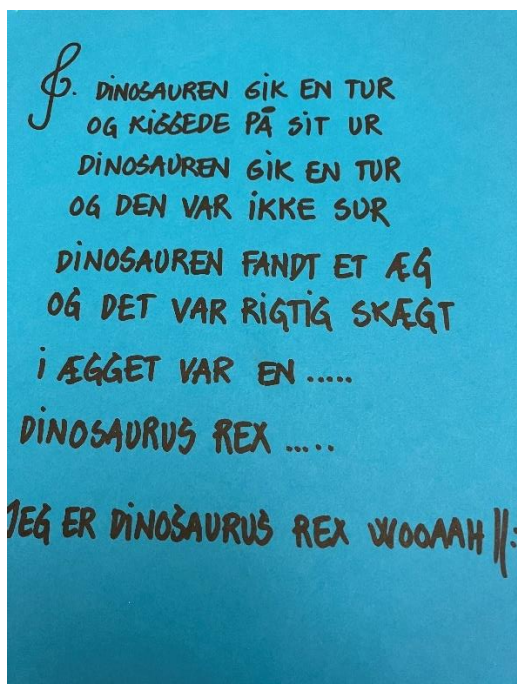 DINOSAUREN GIK EN TUR
OG KIGGEDE PÅ SIT UR
DINOSAUREN GIK EN TUR
OG DEN VAR IKKE SUR
DINOSAUREN FANDT ET ÆG
OG DET VAR RIGTIG SKÆGT
I ÆGGET VAR EN .....
DINOSAURUS REX .....
JEG ER DINOSAURUS REX WOOAAH ||: